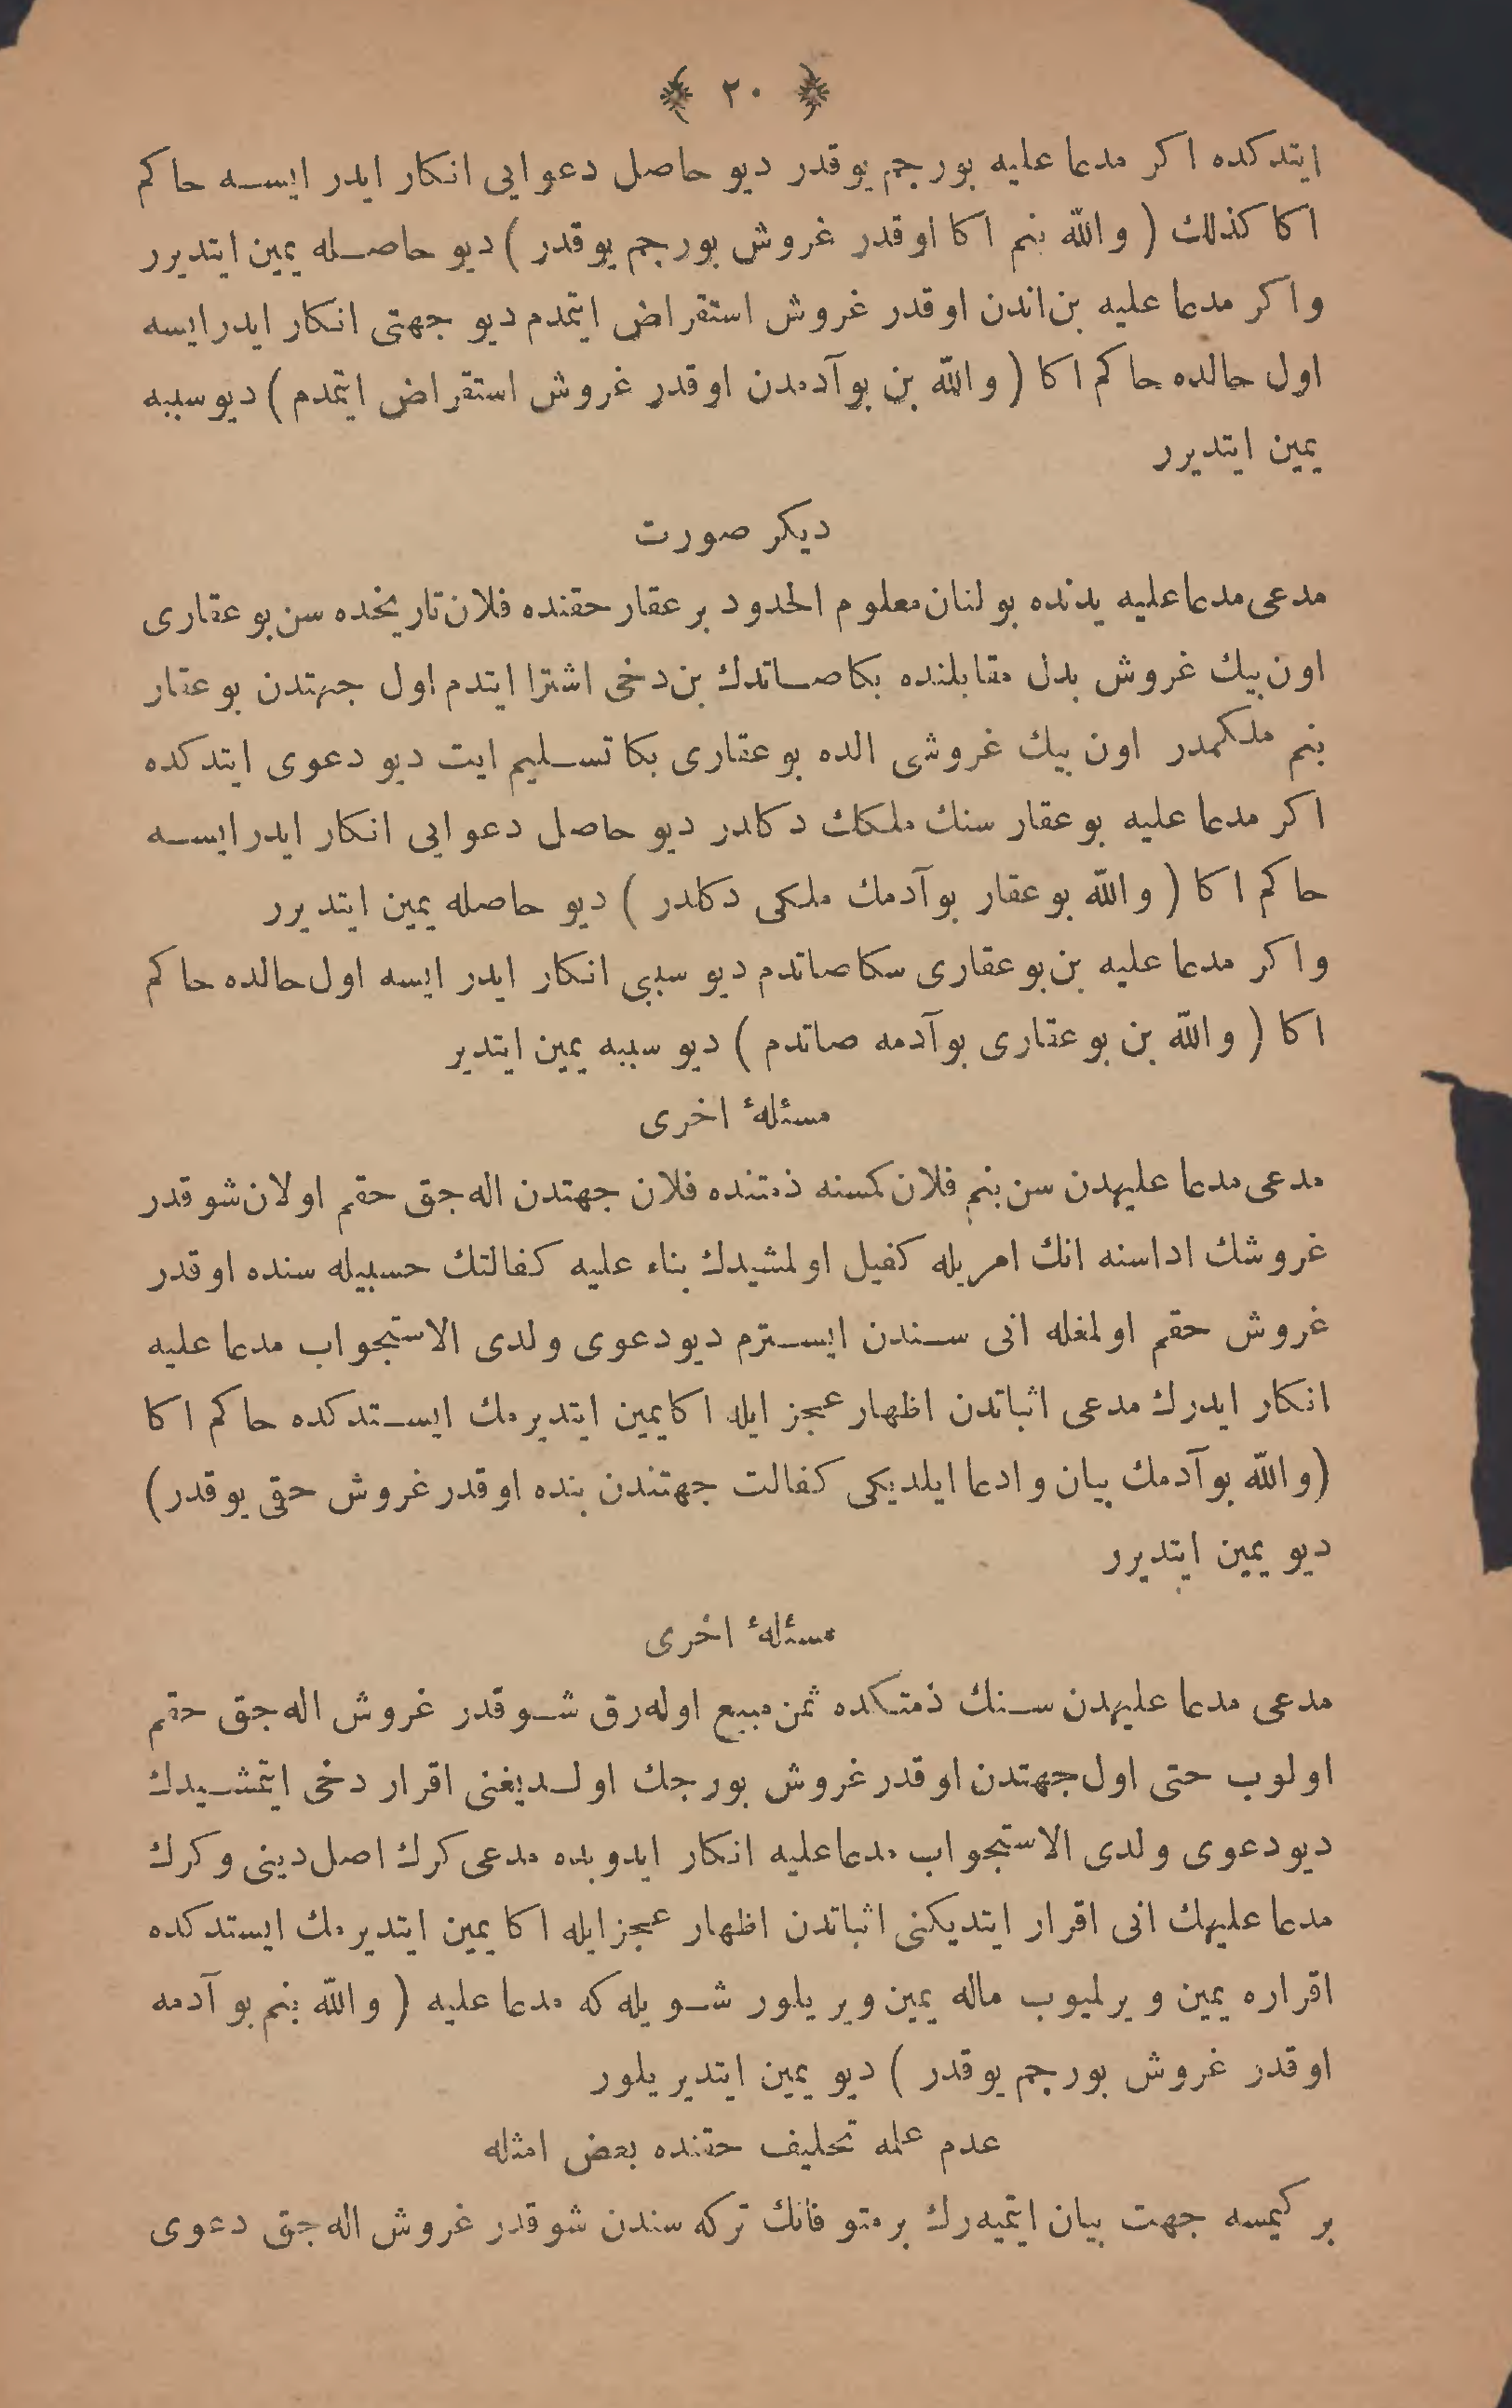 ﴿ ٢٠ ﴾
ایتدکده اکر مدعا علیه بورجم یوقدر دیو حاصل دعوایی انکار ایدر ایسه حاکم
اکا کذلك ( والله بنم اکا اوقدر غروش بورجم یوقدر ) دیو حاصله یمین ایتدیرر
واکر مدعا علیه بن اندن اوقدر غروش استقراض ایتمدم دیو جهتی انکار ایدرایسه
اول حالده حاکم اکا ( والله بن بو آدمدن اوقدر غروش استقراض ایتمدم ) دیو سببه
یمین ایتدیرر
دیکر صورت
مدعی مدعا علیه یدنده بولنان معلوم الحدود بر عقار حقنده فلان تاریخده سن بو عقاری
اون بیك غروش بدل مقابلنده بکا صاتدك بن دخی اشترا ایتدم اول جهتدن بو عقار
بنم ملکمدر اون بیك غروشی الده بو عقاری بکا تسلیم ایت دیو دعوی ایتدکده
اکر مدعا علیه بو عقار سنك ملکك دکلدر دیو حاصل دعوایی انکار ایدر ایسه
حاکم اکا ( والله بو عقار بو آدمك ملکی دکلدر ) دیو حاصله یمین ایتدیرر
واکر مدعا علیه بن بو عقاری سکا صاتمدم دیو سببی انکار ایدر ایسه اول حالده حاکم
اکا ( والله بن بو عقاری بو آدمه صاتمدم ) دیو سببه یمین ایتدیر
مسئلهٔ اخری
مدعی مدعا علیهدن سن بنم فلان کمسنه ذمتنده فلان جهتدن اله جق حقم اولان شو قدر
غروشك اداسنه انك امریله کفیل اولمشیدك بناء علیه کفالتك حسبیله سنده اوقدر
غروش حقم اولمغله انی سندن ایسترم دیو دعوی ولدی الاستجواب مدعا علیه
انکار ایدرك مدعی اثباتدن اظهار عجز ایله اکا یمین ایتدیرمك ایستدکده حاکم اکا
(والله بو آدمك بیان وادعا ایلدیکی کفالت جهتندن بنده اوقدر غروش حقی یوقدر)
دیو یمین ایتدیرر
مسئلهٔ اخری
مدعی مدعا علیهدن سنك ذمتکده ثمن مبیع اوله رق شو قدر غروش اله جق حقم
اولوب حتی اول جهتدن اوقدر غروش بورجك اولدیغنی اقرار دخی ایتمشیدك
دیو دعوی ولدی الاستجواب مدعا علیه انکار ایدوبده مدعی کرك اصل دینی وکرك
مدعا علیهك انی اقرار ایتدیکنی اثباتدن اظهار عجز ایله اکا یمین ایتدیرمك ایستدکده
اقراره یمین ویرلمیوب ماله یمین ویریلور شویله که مدعا علیه ( والله بنم بو آدمه
اوقدر غروش بورجم یوقدر ) دیو یمین ایتدیریلور
عدم علمه تحلیف حقنده بعض امثله
بر کیمسه جهت بیان ایتمیه رك بر متوفانك ترکه سندن شو قدر غروش اله جق دعوی